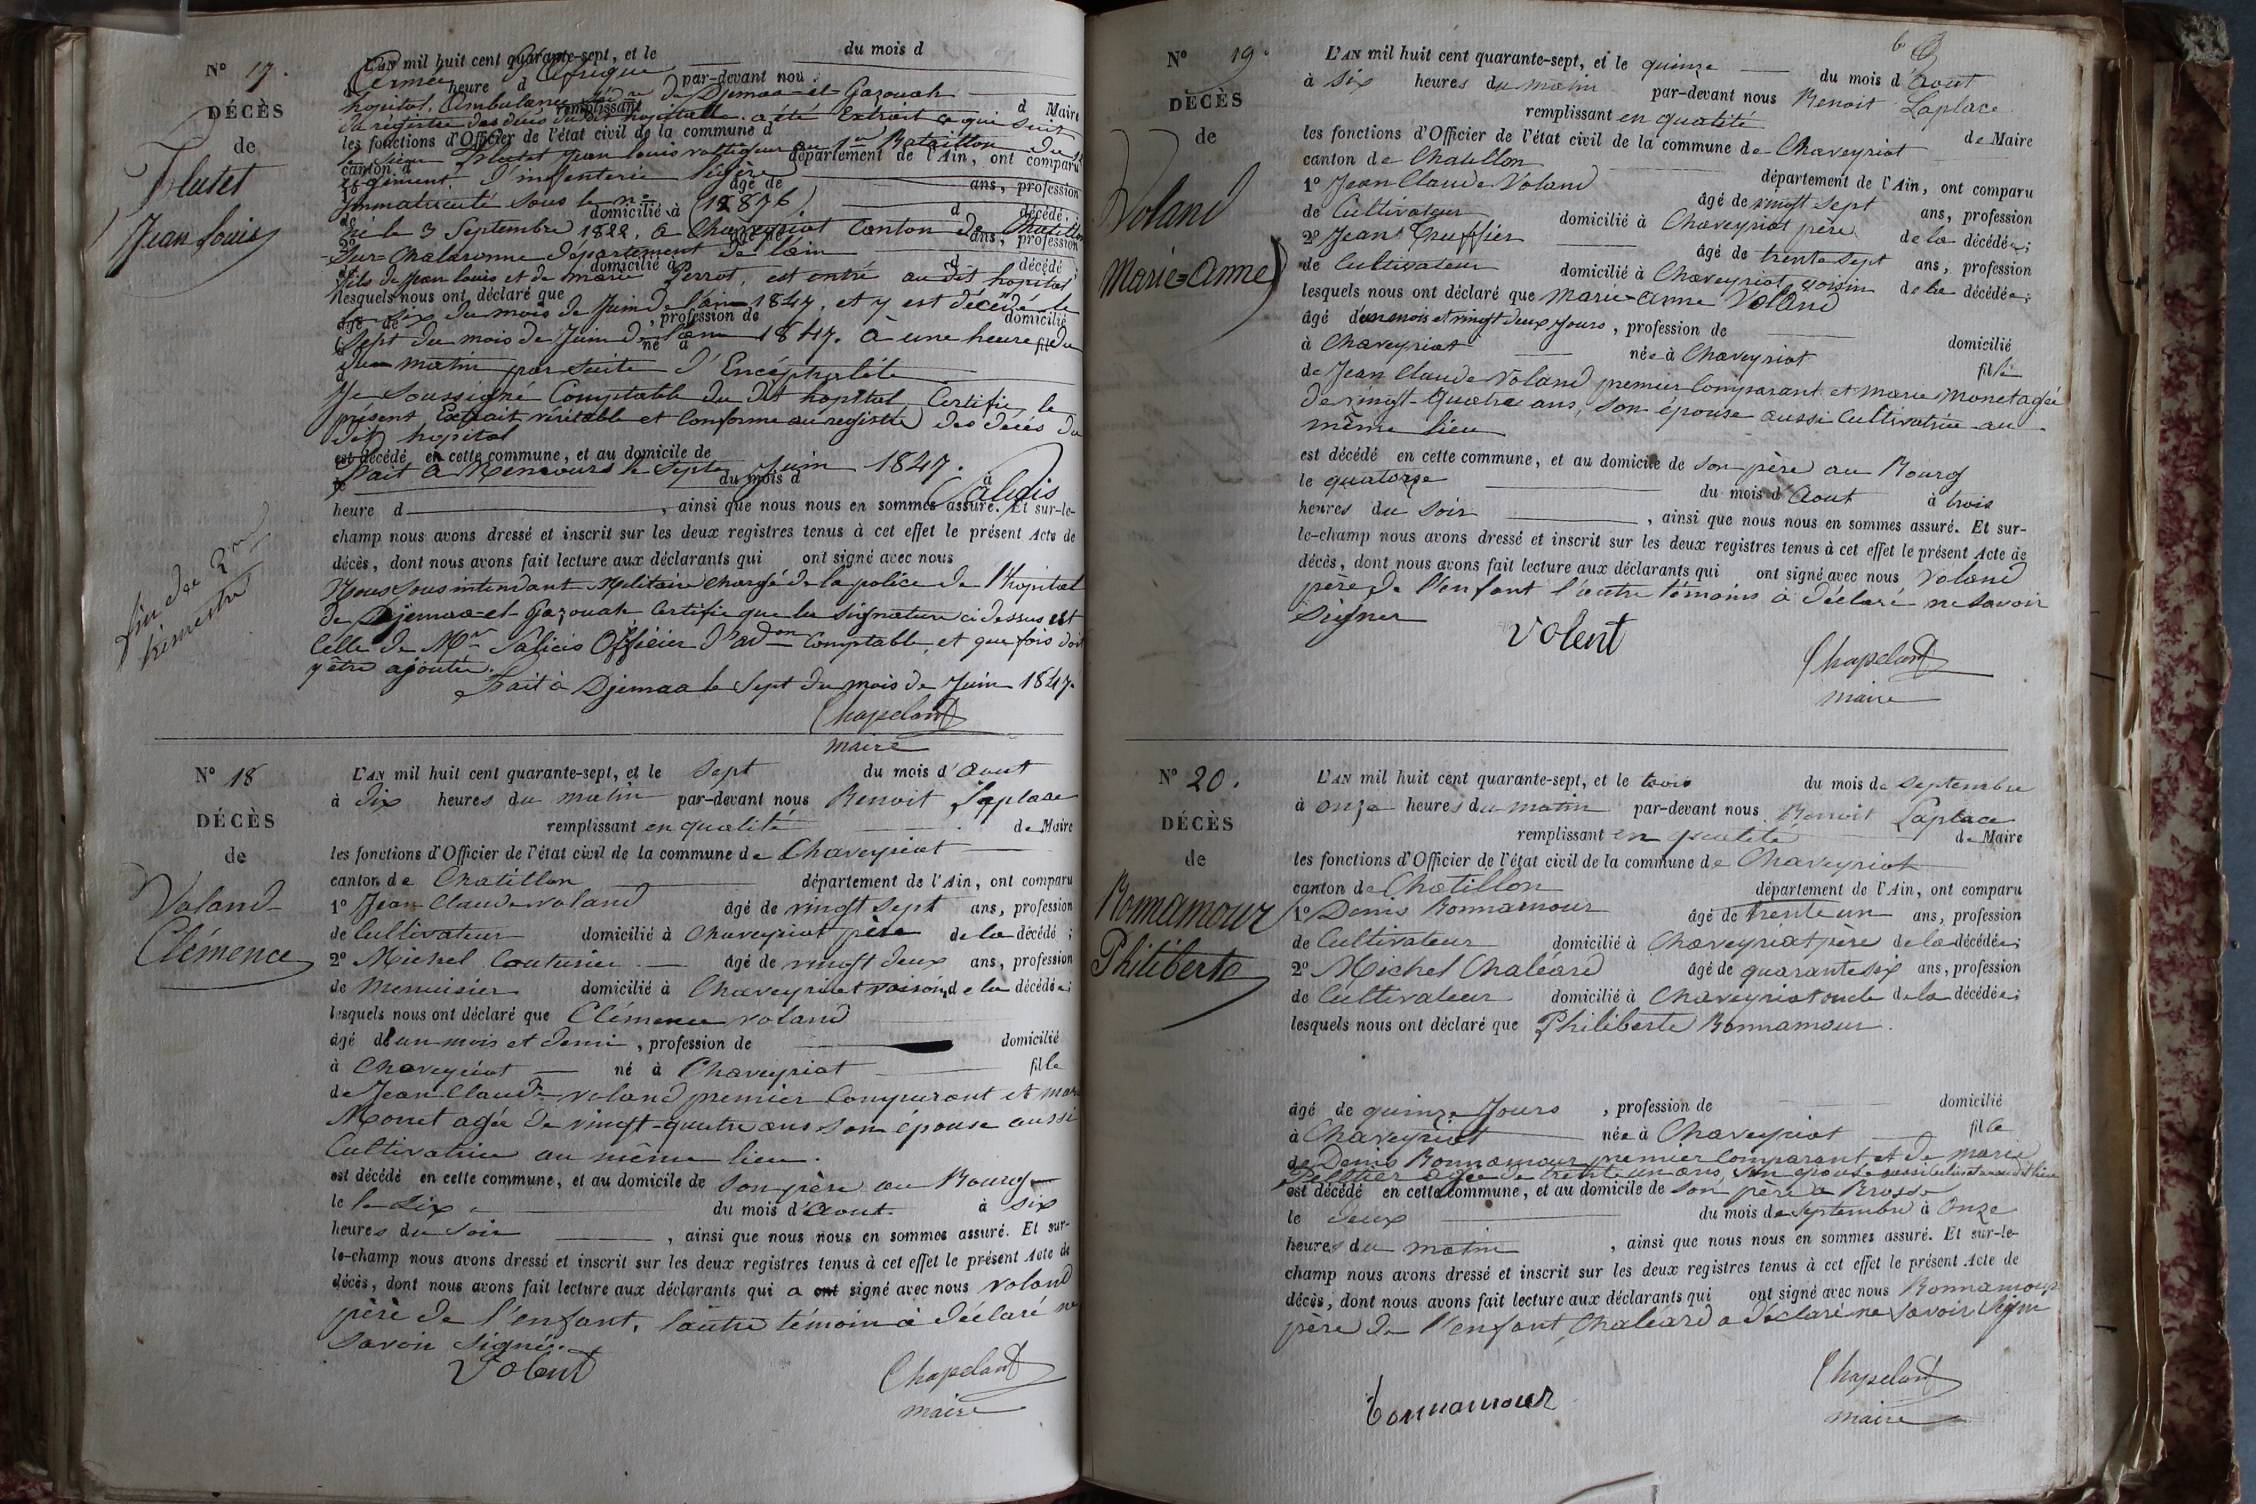 N° 17.
DÉCÈS
de
Flutet
Jean Louis
L'AN mil huit cent quarante-sept, et le du mois d
Armée d'Afrique
heure d par-devant nou
hopital Ambulance de Djemaa-el-Gazouah
remplissant d Maire
du registre des décès du dit hopital a été Extrait ce qui suit
les fonctions d'Officier de l'état civil de la commune d
le sieur Flutet Jean Louis voltigeur au 1er Bataillon du
canton d département de l'Ain, ont comparu
régiment d'infenterie légère
âgé de ans, profession
Immatriculé sous le n° (12876)
de domicilié à d décédé;
né le 3 Septembre 1822, à Chaveyriat Canton de Chatillon
2° âgé de ans, profession
Sur-Chalaronne Département de l'ain
de domicilié à d décédé;
fils de Jean louis et de marie Perrot, est entré au dit hopital
lesquels nous ont déclaré que
le six du mois de Juin de l'an 1847, et y est décédé le
âgé de , profession de domicilié
Sept du mois de Juin de l'an 1847. à une heure du
à né à fil
matin par suite d'Encéphalite
Je Soussigné Comptable du dit hopital, Certifie le
présent Extrait véritable et Conforme au registre des décès du
dit hopital
est décédé en cette commune, et au domicile de
Fait à Nemours le Sept Juin 1847.
le du mois d à
Salicis
heure d , ainsi que nous nous en sommes assuré. Et sur-le-
champ nous avons dressé et inscrit sur les deux registres tenus à cet effet le présent Acte de
décès, dont nous avons fait lecture aux déclarants qui ont signé avec nous
Nous Sous intendant Militaire chargé de la police de l'hopital
de Djemaa-el-Gazouah Certifie que la signature ci dessus est
Celle de Mr Salicis Officier d'adon Comptable, et que fois doit
y être ajoutée.
Fait à Djemaa le Sept du mois de Juin 1847.
Chapeland
maire
fin du 2me
trimestre
N° 18
DÉCÈS
de
Voland
Clémence
L'AN mil huit cent quarante-sept, et le sept du mois d'Aout
à dix heures du matin par-devant nous Benoit Laplace
remplissant en qualité de Maire
les fonctions d'Officier de l'état civil de la commune de Chaveyriat
canton de Chatillon département de l'Ain, ont comparu
1° Jean Claude Voland âgé de vingt sept ans, profession
de Cultivateur domicilié à Chaveyriat père de la décédé;
2° Michel Couturier âgé de vingt deux ans, profession
de Menuisier domicilié à Chaveyriat voisin de la décédée;
lesquels nous ont déclaré que Clémence Voland
âgé d'un mois et demi, profession de domicilié
à Chaveyriat né à Chaveyriat fille
de Jean Claude Voland premier Comparant et marie
Monet agée de vingt-quatre ans son épouse aussi
Cultivatrice au même lieu.
est décédé en cette commune, et au domicile de son père au Bourg
le le Six du mois d'Aout à six
heures du Soir , ainsi que nous nous en sommes assuré. Et sur-
le-champ nous avons dressé et inscrit sur les deux registres tenus à cet effet le présent Acte de
décès, dont nous avons fait lecture aux déclarants qui a ont signé avec nous Voland
père de l'enfant, l'autre témoin a déclaré ne
savoir signé.
Volent
Chapeland
maire
N° 19.
DÉCÈS
de
Voland
Marie-Anne
L'AN mil huit cent quarante-sept, et le quinze du mois d'Aout
à six heures du matin par-devant nous Benoit Laplace
remplissant en qualité de Maire
les fonctions d'Officier de l'état civil de la commune de Chaveyriat
canton de Chatillon département de l'Ain, ont comparu
1° Jean Claude Voland âgé de vingt sept ans, profession
de Cultivateur domicilié à Chaveyriat père de la décédée;
2° Jean Truffier âgé de trente sept ans, profession
de Cultivateur domicilié à Chaveyriat voisin de la décédée;
lesquels nous ont déclaré que Marie-Anne Voland
âgé d'un mois et vingt deux Jours, profession de domicilié
à Chaveyriat née à Chaveyriat fille
de Jean Claude Voland premier Comparant et marie monet agée
de vingt-quatre ans, son épouse aussi Cultivatrice au
même lieu
est décédé en cette commune, et au domicile de son père au Bourg
le quatorze du mois d'Aout à trois
heures du soir , ainsi que nous nous en sommes assuré. Et sur-
le-champ nous avons dressé et inscrit sur les deux registres tenus à cet effet le présent Acte de
décès, dont nous avons fait lecture aux déclarants qui ont signé avec nous Voland
père de l'enfant l'autre témoins a déclaré ne savoir
Signer
Volent
Chapeland
maire
N° 20.
DÉCÈS
de
Bonnamour
Philiberte
L'AN mil huit cent quarante-sept, et le trois du mois de Septembre
à onze heures du matin par-devant nous Benoit Laplace
remplissant en qualité de Maire
les fonctions d'Officier de l'état civil de la commune de Chaveyriat
canton de Chatillon département de l'Ain, ont comparu
1° Denis Bonnamour âgé de trente un ans, profession
de Cultivateur domicilié à Chaveyriat père de la décédée;
2° Michel Chaléard âgé de quarante six ans, profession
de Cultivateur domicilié à Chaveyriat oncle de la décédée;
lesquels nous ont déclaré que Philiberte Bonnamour.
âgé de quinze Jours , profession de domicilié
à Chaveyriat née à Chaveyriat fille
de Denis Bonnamour premier Comparant et de marie
Pelletier agée de trente un ans, son épouse aussi Cultivatrice au dit lieu
est décédé en cette commune, et au domicile de son père à Brosse
le deux du mois de Septembre à Onze
heures du matin , ainsi que nous nous en sommes assuré. Et sur-le-
champ nous avons dressé et inscrit sur les deux registres tenus à cet effet le présent Acte de
décès, dont nous avons fait lecture aux déclarants qui ont signé avec nous Bonnamour
père de l'enfant, Chaléard a déclaré ne savoir signe
bonnamour
Chapeland
maire